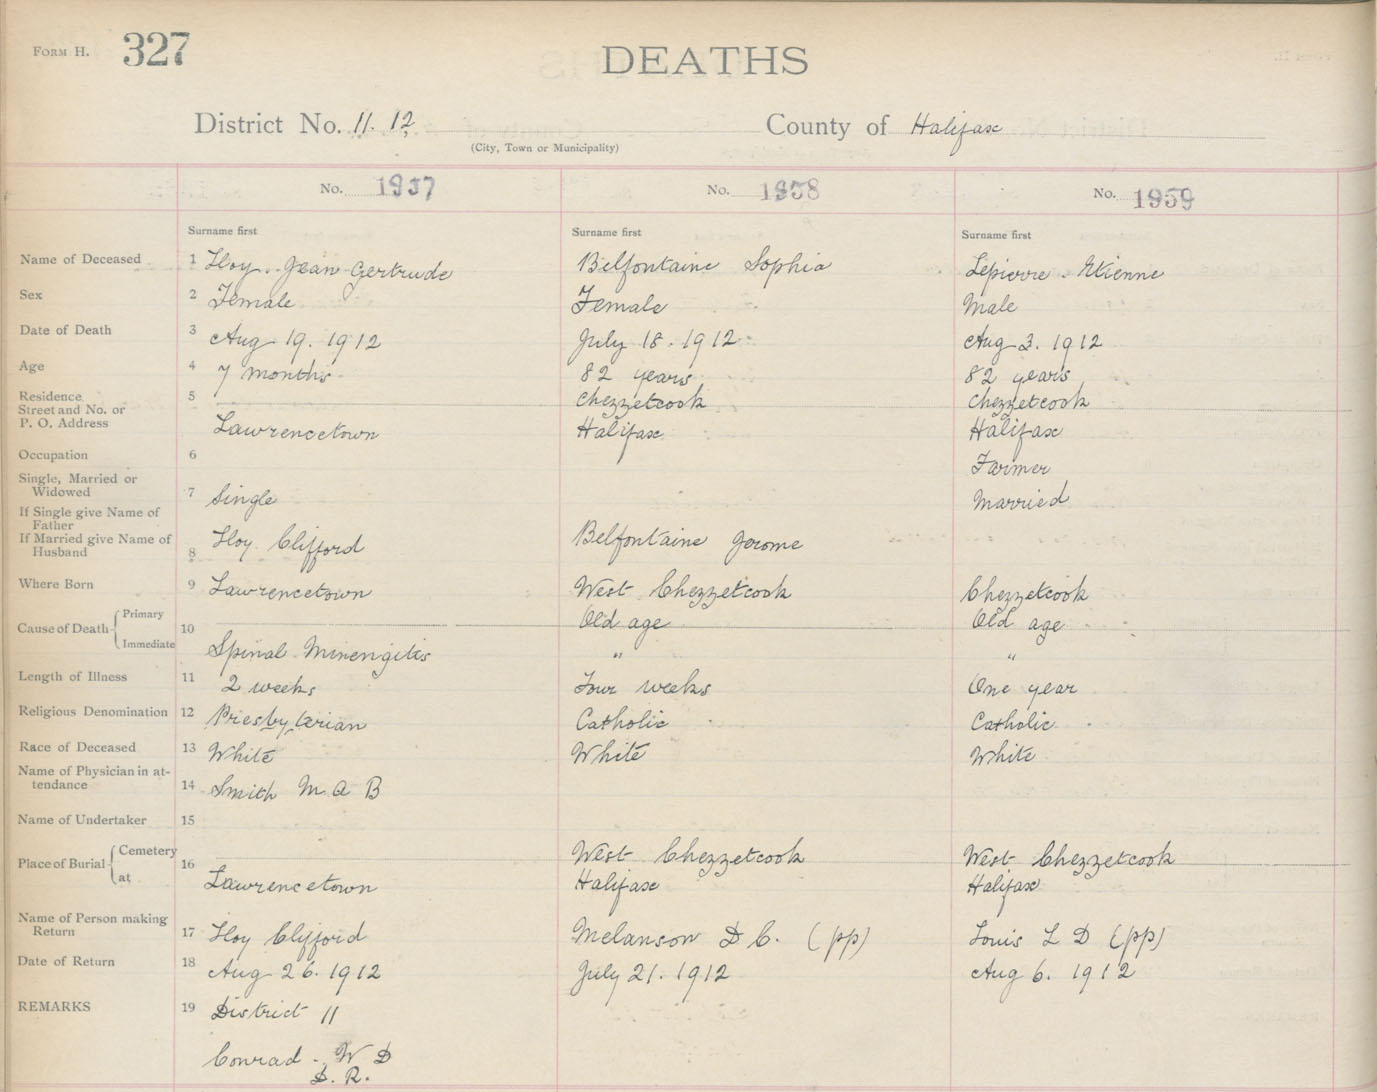 FORM H. 327
DEATHS
District No. 11. 12 County of Halifax
(City, Town or Municipality)
No. 1957 No. 1958 No. 1959
Surname first Surname first Surname first
Name of Deceased 1 Jean Gertrude Belfontaine Sophia Lepierre Etienne
Sex 2 Female Female Male
Date of Death 3 Aug 19. 1912 July 18. 1912 Aug 3. 1912
Age 4 7 months 82 years 82 years
Residence 5 Chezzetcook Chezzetcook
Street and No. or
P. O. Address Lawrencetown Halifax Halifax
Occupation 6 Farmer
Single, Married or
Widowed 7 Single Married
If Single give Name of
Father
If Married give Name of
Husband 8 Clifford Belfontaine Jerome
Where Born 9 Lawrencetown West Chezzetcook Chezzetcook
Cause of Death Primary 10 Old age Old age
Immediate Spinal Minengitis " "
Length of Illness 11 2 weeks Four weeks One year
Religious Denomination 12 Presbyterian Catholic Catholic
Race of Deceased 13 White White White
Name of Physician in at-
tendance 14 Smith M A B
Name of Undertaker 15
Place of Burial Cemetery 16 West Chezzetcook West Chezzetcook
at Lawrencetown Halifax Halifax
Name of Person making
Return 17 Clifford Melanson D C. (pp) Louis L D (pp)
Date of Return 18 Aug 26. 1912 July 21. 1912 Aug 6. 1912
REMARKS 19 District 11
Conrad - W D
D. R.